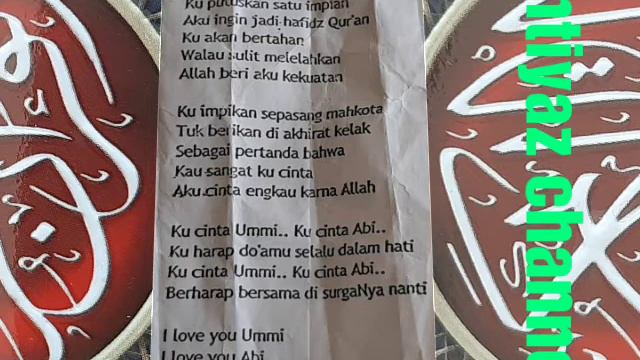 Ku putuskan satu impian
Aku ingin jadi hafidz Qur'an
Ku akan bertahan
Walau sulit melelahkan
Allah beri aku kekuatan
Ku impikan sepasang mahkota
Tuk berikan di akhirat kelak
Sebagai pertanda bahwa
Kau sangat ku cinta
Aku cinta engkau karna Allah
Ku cinta Ummi.. Ku cinta Abi..
Ku harap do'amu selalu dalam hati
Ku cinta Ummi.. Ku cinta Abi..
Berharap bersama di surgaNya nanti
I love you Ummi
I love you Abi
ntiyaz chann